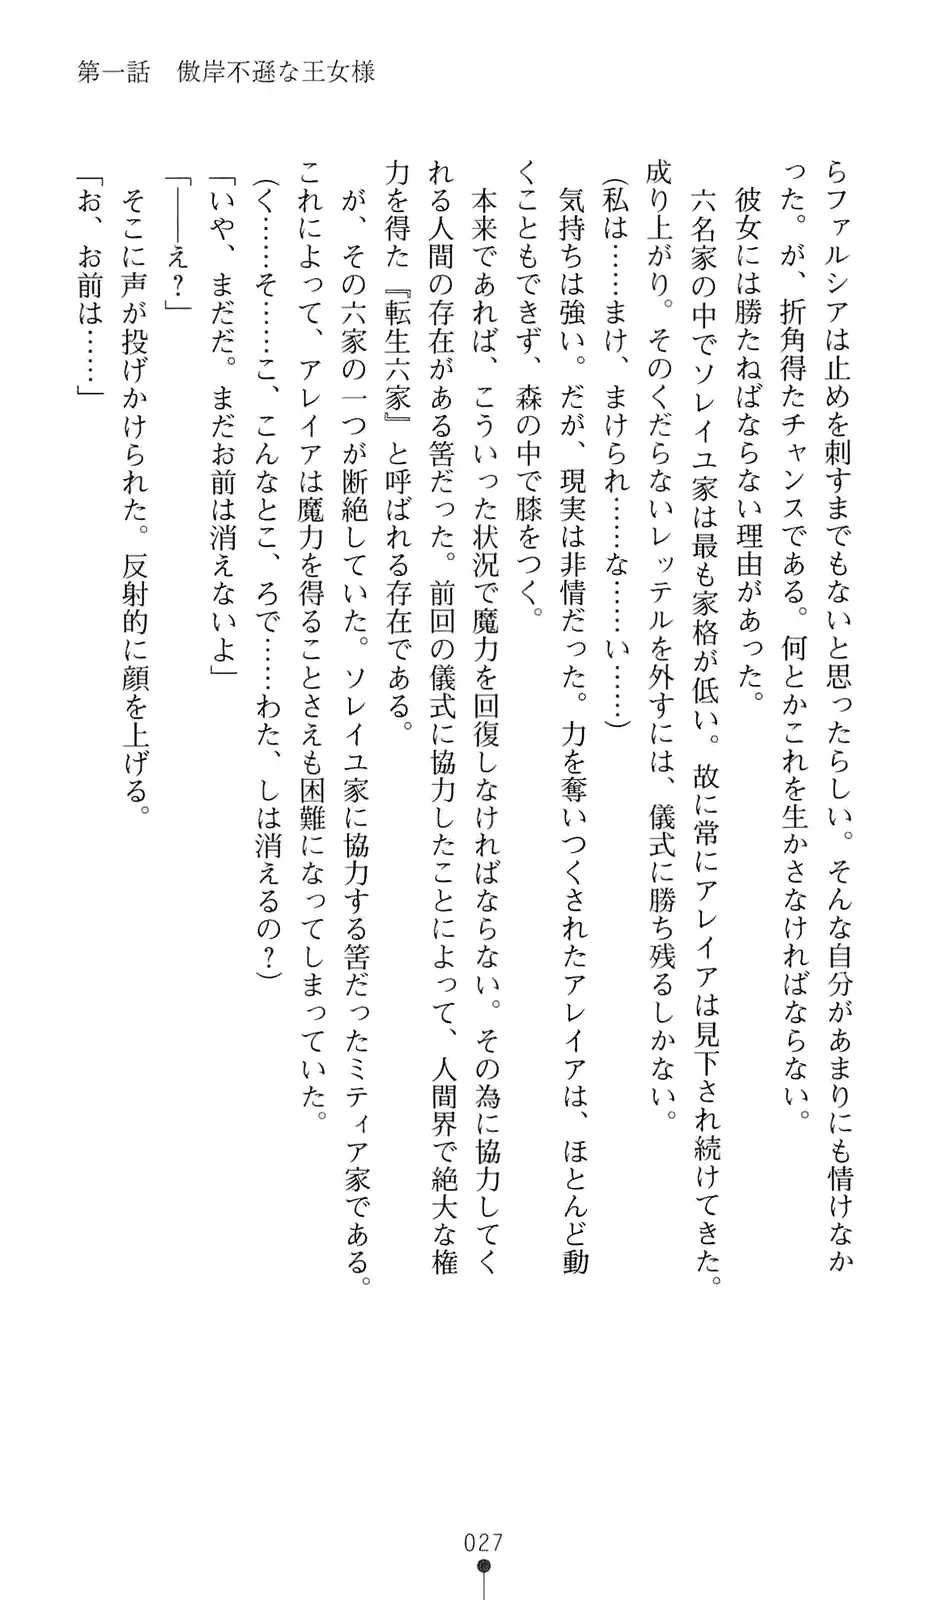 第一話　傲岸不遜な王女様
らファルシアは止めを刺すまでもないと思ったらしい。そんな自分があまりにも情けなか
った。が、折角得たチャンスである。何とかこれを生かさなければならない。
彼女には勝たねばならない理由があった。
六名家の中でソレイユ家は最も家格が低い。故に常にアレイアは見下され続けてきた。
成り上がり。そのくだらないレッテルを外すには、儀式に勝ち残るしかない。
（私は……まけ、まけられ……な……い……）
気持ちは強い。だが、現実は非情だった。力を奪いつくされたアレイアは、ほとんど動
くこともできず、森の中で膝をつく。
本来であれば、こういった状況で魔力を回復しなければならない。その為に協力してく
れる人間の存在がある筈だった。前回の儀式に協力したことによって、人間界で絶大な権
力を得た『転生六家』と呼ばれる存在である。
が、その六家の一つが断絶していた。ソレイユ家に協力する筈だったミティア家である。
これによって、アレイアは魔力を得ることさえも困難になってしまっていた。
（く……そ……こ、こんなとこ、ろで……わた、しは消えるの？）
「いや、まだだ。まだお前は消えないよ」
「――え？」
そこに声が投げかけられた。反射的に顔を上げる。
「お、お前は……」
027